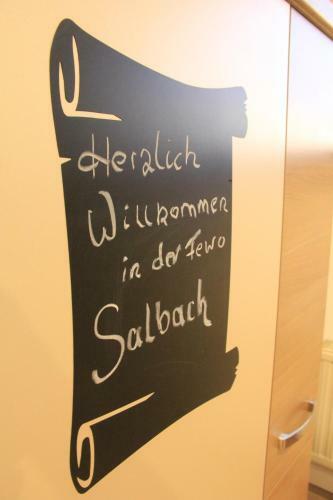 Herzlich
Willkommen
in der Fewo
Salbach